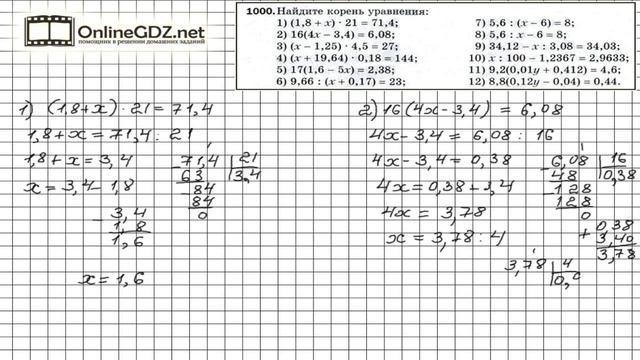 OnlineGDZ.net
помощник в решении домашних заданий
1000. Найдите корень уравнения:
1) (1,8 + x) · 21 = 71,4;
2) 16(4x − 3,4) = 6,08;
3) (x − 1,25) · 4,5 = 27;
4) (x + 19,64) · 0,18 = 144;
5) 17(1,6 − 5x) = 2,38;
6) 9,66 : (x + 0,17) = 23;
7) 5,6 : (x − 6) = 8;
8) 5,6 : x − 6 = 8;
9) 34,12 − x : 3,08 = 34,03;
10) x : 100 − 1,2367 = 2,9633;
11) 9,2(0,01y + 0,412) = 4,6;
12) 8,8(0,12y − 0,04) = 0,44.
1) (1,8+x)·21=71,4
1,8+x=71,4:21
1,8+x=3,4
x=3,4-1,8
- 3,4
1,8
1,6
x=1,6
- 71,4 | 21
63 | 3,4
- 84
84
0
2) 16(4x-3,4)=6,08
4x-3,4=6,08:16
4x-3,4=0,38
4x=0,38+3,4
4x=3,78
x=3,78:4
- 6,08 | 16
48 | 0,38
- 128
128
0
+ 0,38
3,40
3,78
3,78 | 4
0,